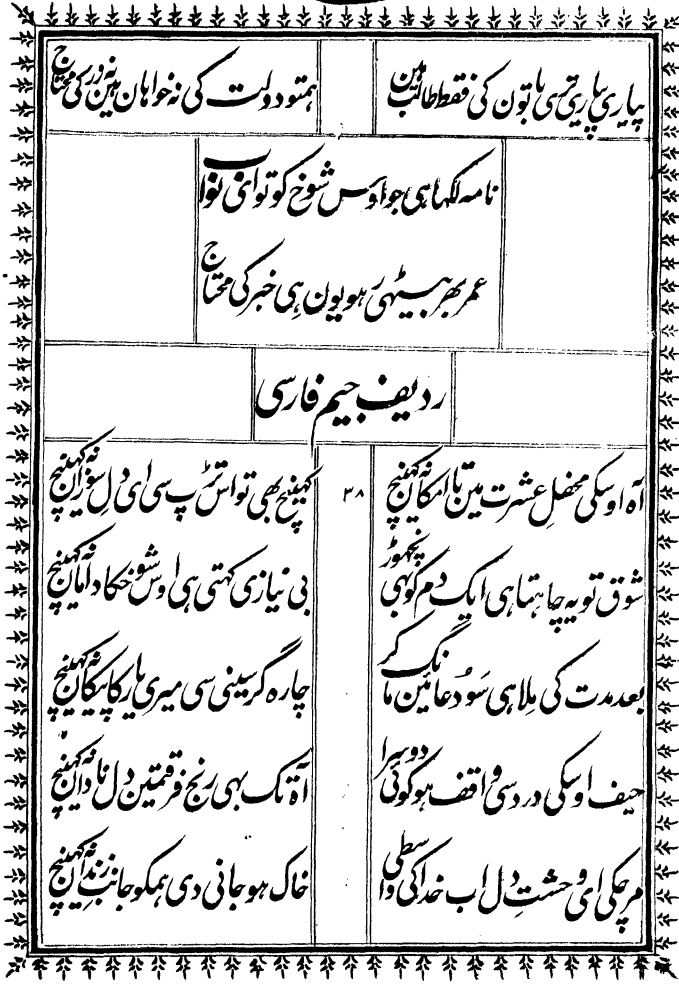 پیاری پیاری تری باتون کی فقط طالب ہین
ہمتو دولت کی نہ خواہان ہین نہ زر کی محتاج
نامہ لکہا ہی جو اوس شوخ کو تو ای نواب
عمر بھر بیٹھی رہو یون ہی خبر کی محتاج
ردیف جیم فارسی
آہ اوسکی محفل عشرت مین تا امکان نہ کھینچ
۳۸
کھینچ بھی تو اس تڑپ سی ای دل سوزان نہ کھینچ
شوق تو یہ چاہتا ہی ایک دم کو بھی نچھوڑ
بی نیازی کہتی ہی اوس شوخ کا دامان نہ کھینچ
بعد مدت کی مِلا ہی سَو دعائین مانگ کر
چارہ گر سینی سی میری یار کا پیکان نہ کھینچ
حیف اوسکی درد سی واقف ہو کوئی دوسرا
آہ تک بھی رنج فرقت مین دل نادان نہ کھینچ
مر چکی ای وحشتِ دل اب خدا کی واسطی
خاک ہو جانی دی ہمکو جانب زندان نہ کھینچ